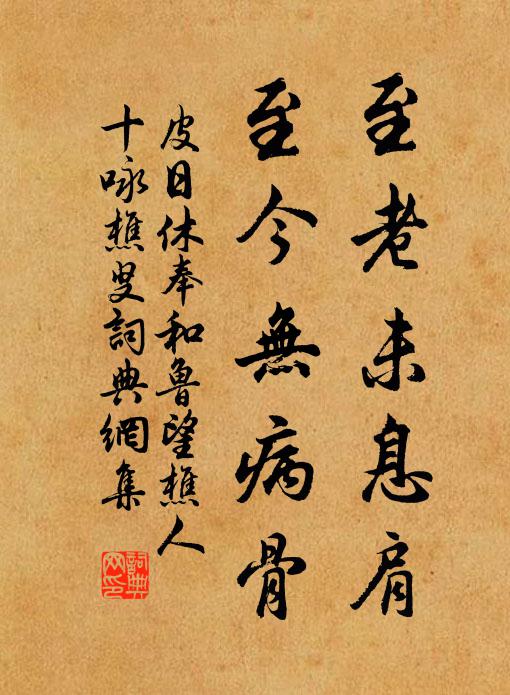 至老未息肩
至今無病骨
皮日休奉和魯望樵人
十咏樵叟詞典網集
詞典
网印